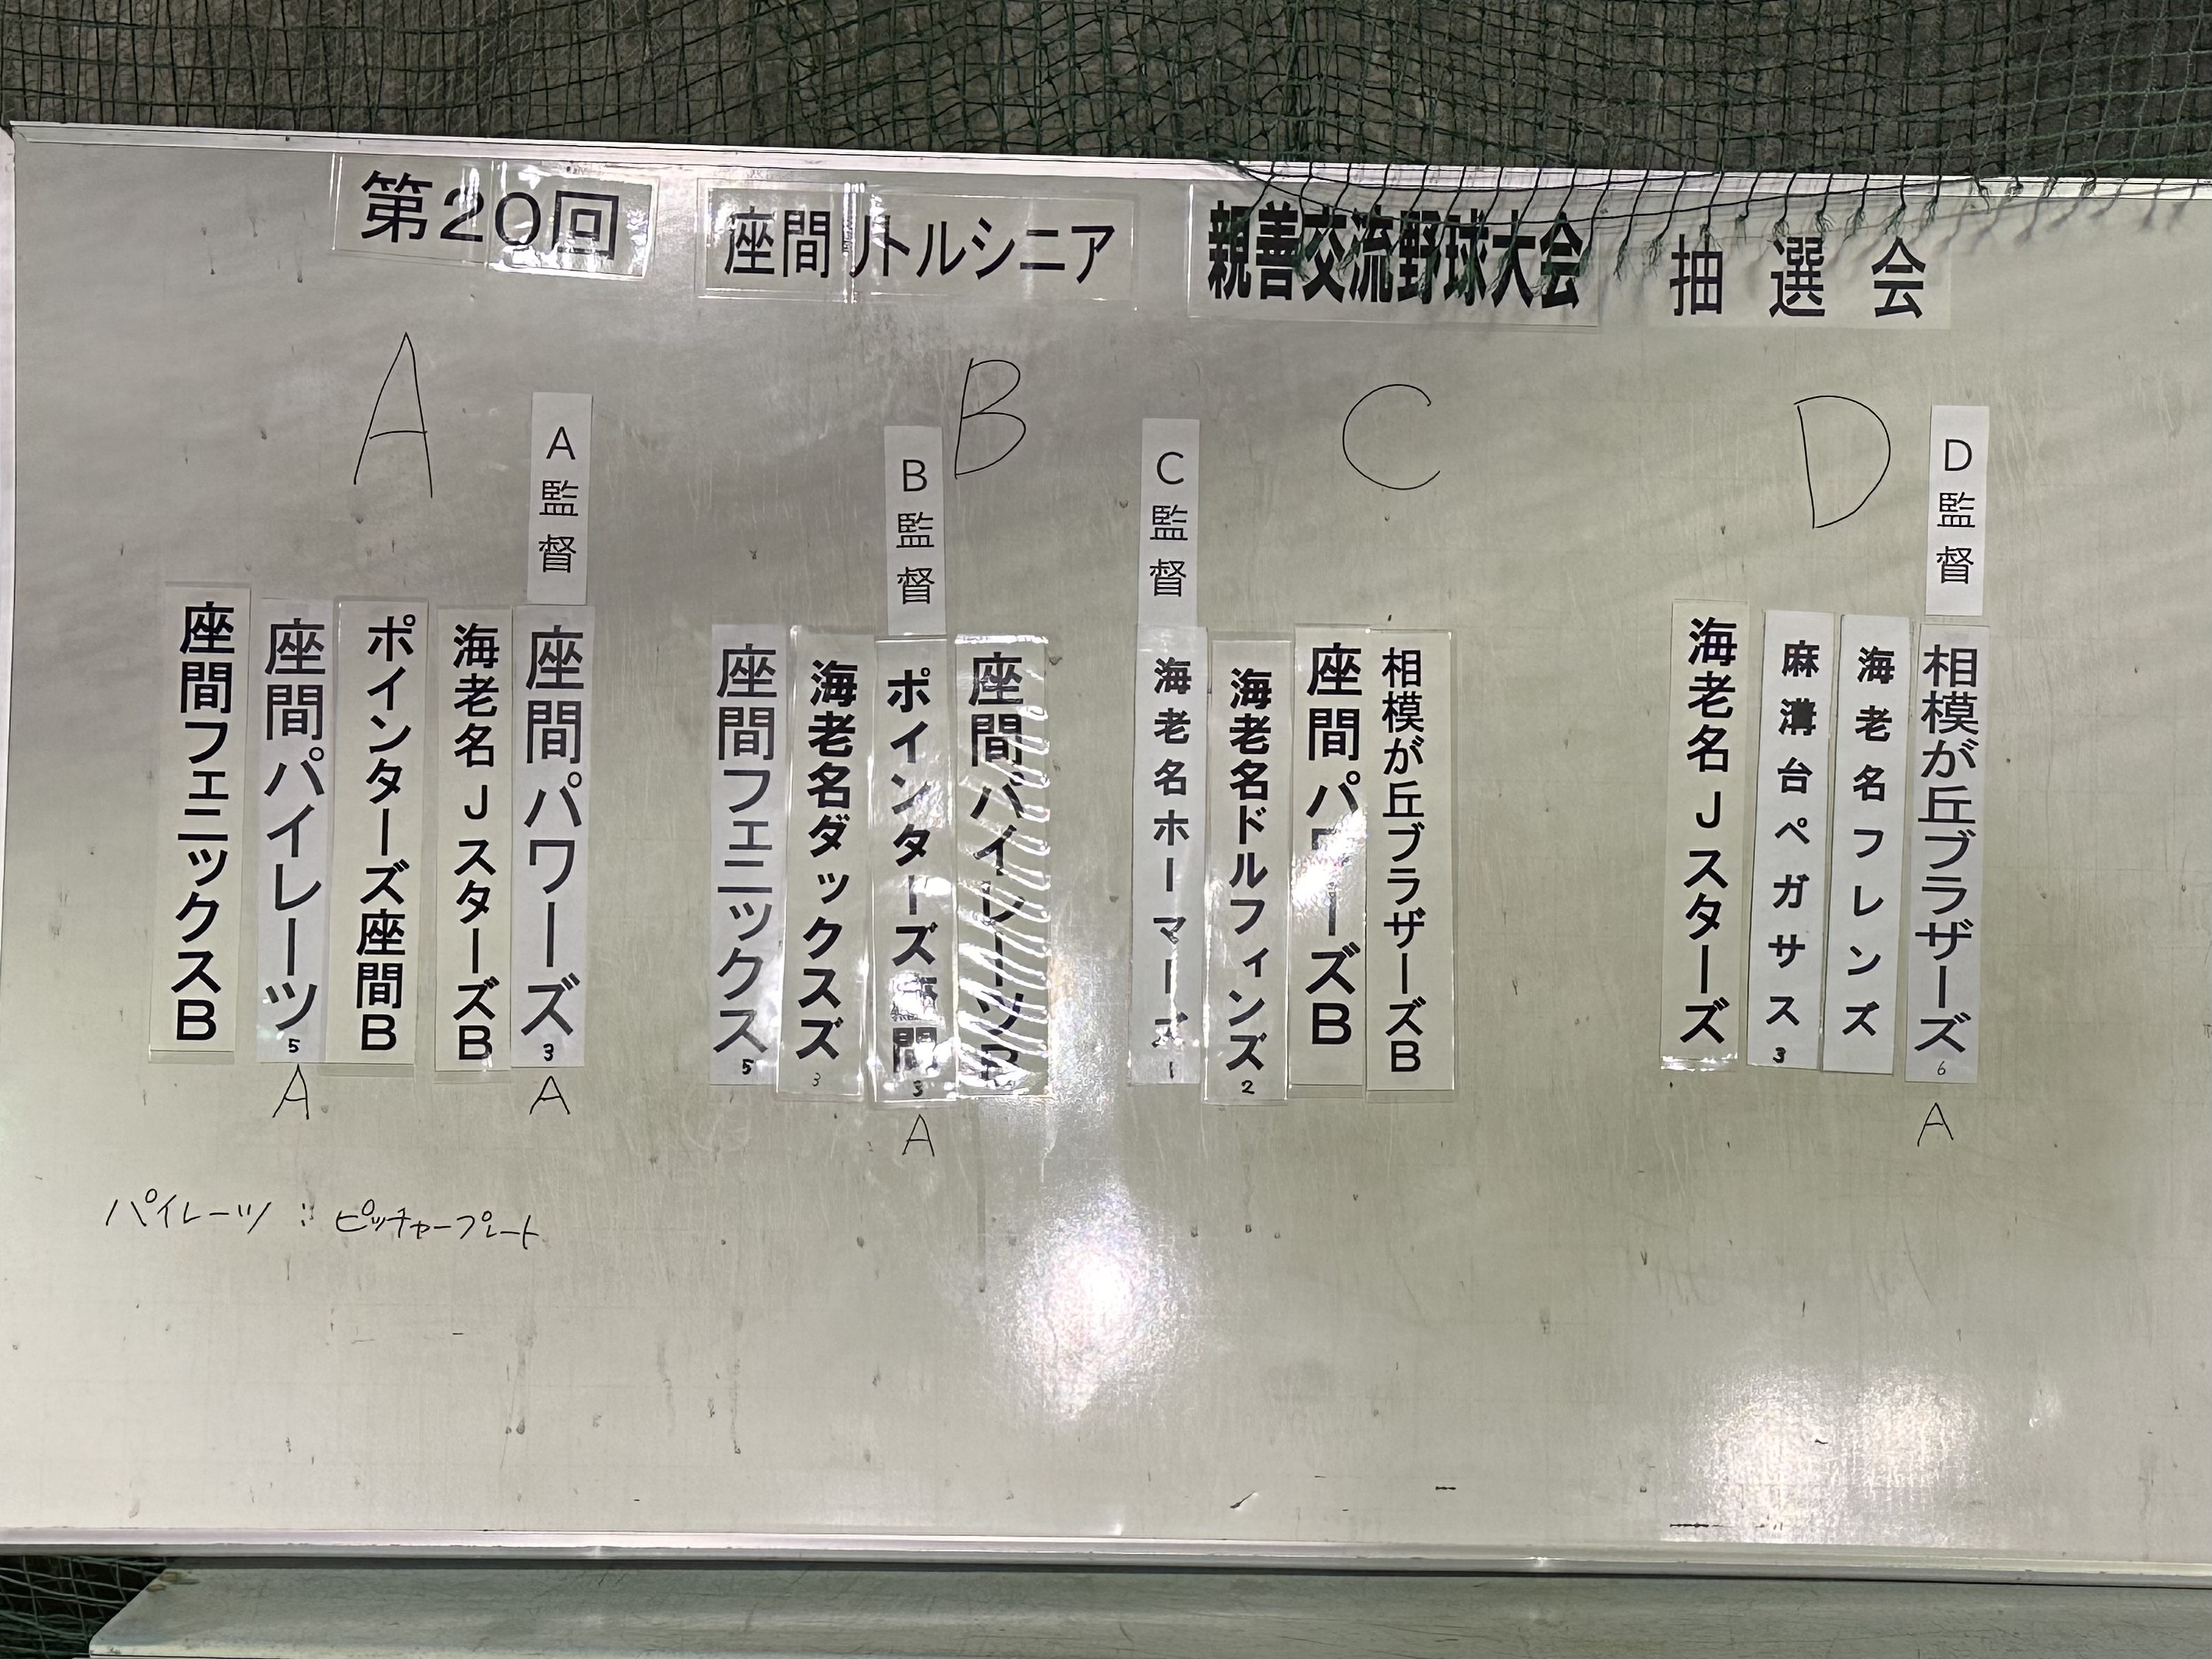 第20回 座間リトルシニア 親善交流野球大会 抽選会
A
A監督
座間フェニックスB
座間パイレーツ 5
A
ポインターズ座間B
海老名JスターズB
座間パワーズ 3
A
B
B監督
座間フェニックス 5
海老名ダックスズ 3
ポインターズ座間 3
A
座間パイレーツB
C
C監督
海老名ホーマーズ 1
海老名ドルフィンズ 2
座間パワーズB
相模が丘ブラザーズB
D
D監督
海老名Jスターズ
麻溝台ペガサス 3
海老名フレンズ
相模が丘ブラザーズ 6
A
パイレーツ : ピッチャープレート